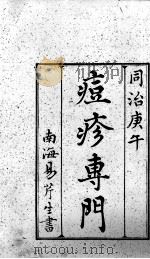 同治庚午
痘疹專門
南海易芹生書
mtoou.info